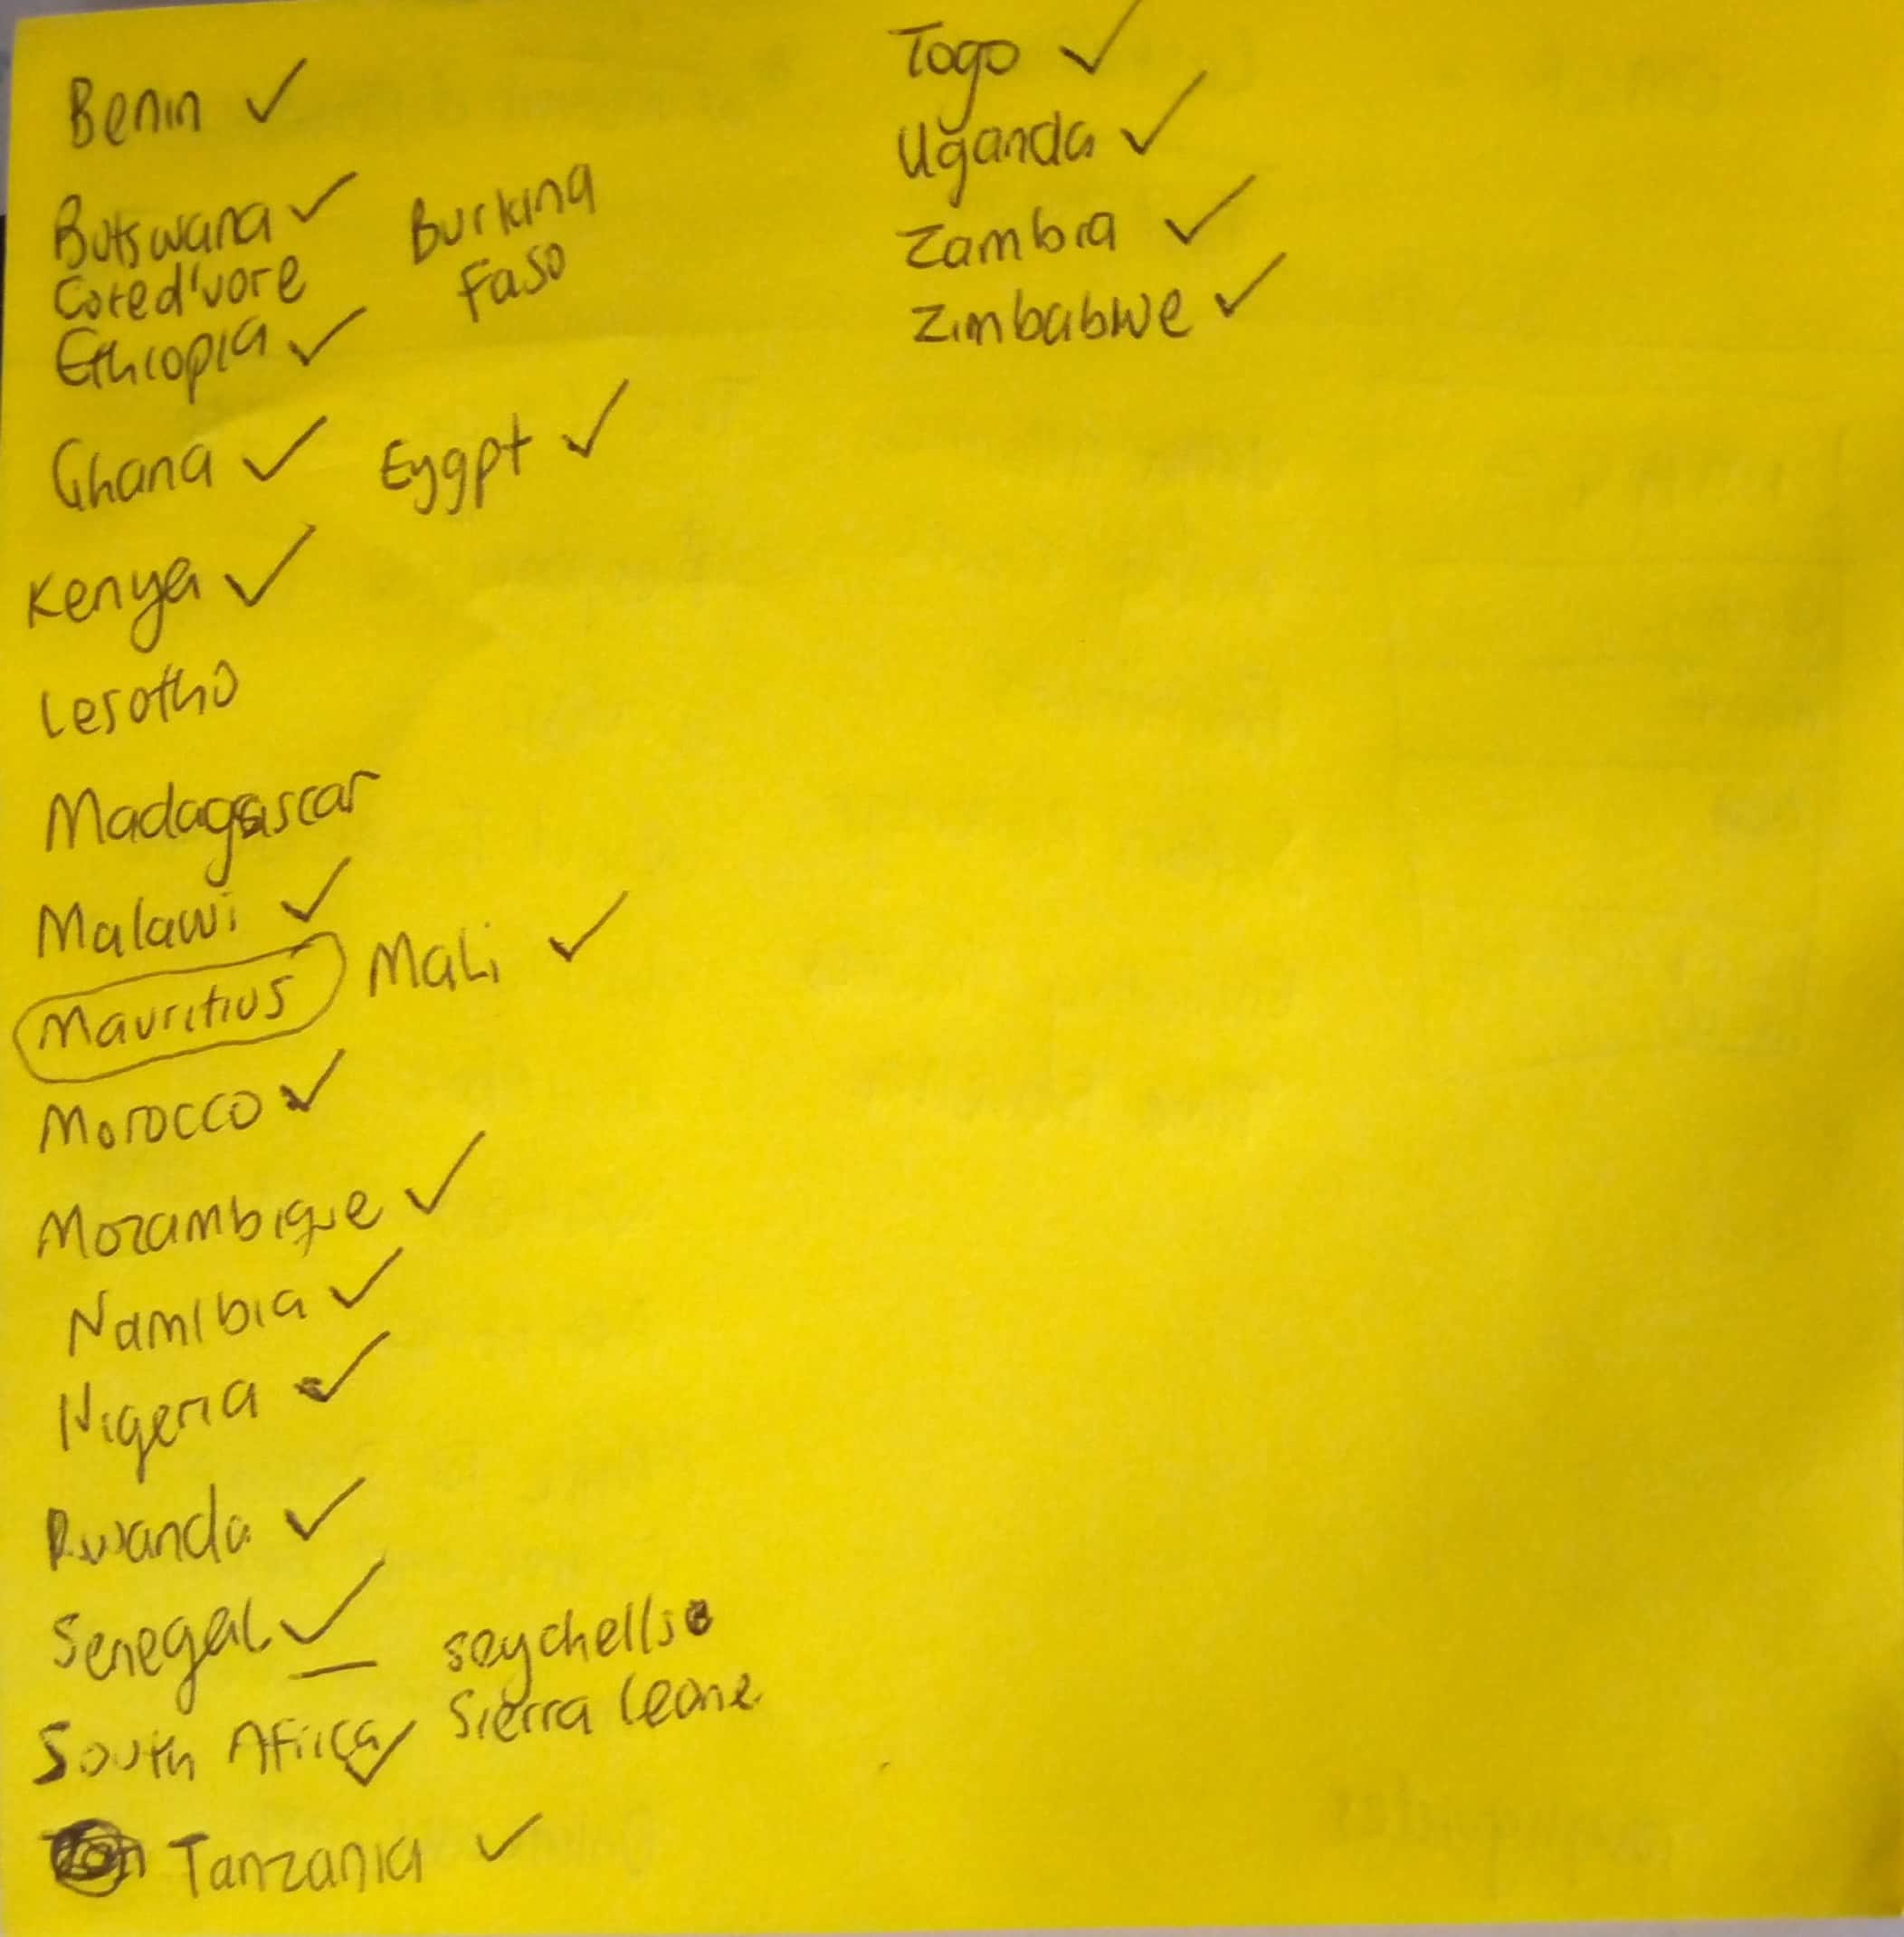 Benin ✓
Botswana ✓ Burkina
Faso
Coted'vore
Ethiopia ✓
Ghana ✓ Eygpt ✓
Kenya ✓
Lesotho
Madagascar
Malawi ✓
Mauritius Mali ✓
Morocco ✓
Mozambique ✓
Namibia ✓
Nigeria ✓
Rwanda ✓
Senegal ✓ — seychells
South Africa ✓ Sierra Leone
Tanzania ✓
Togo ✓
Uganda ✓
Zambia ✓
Zimbabwe ✓